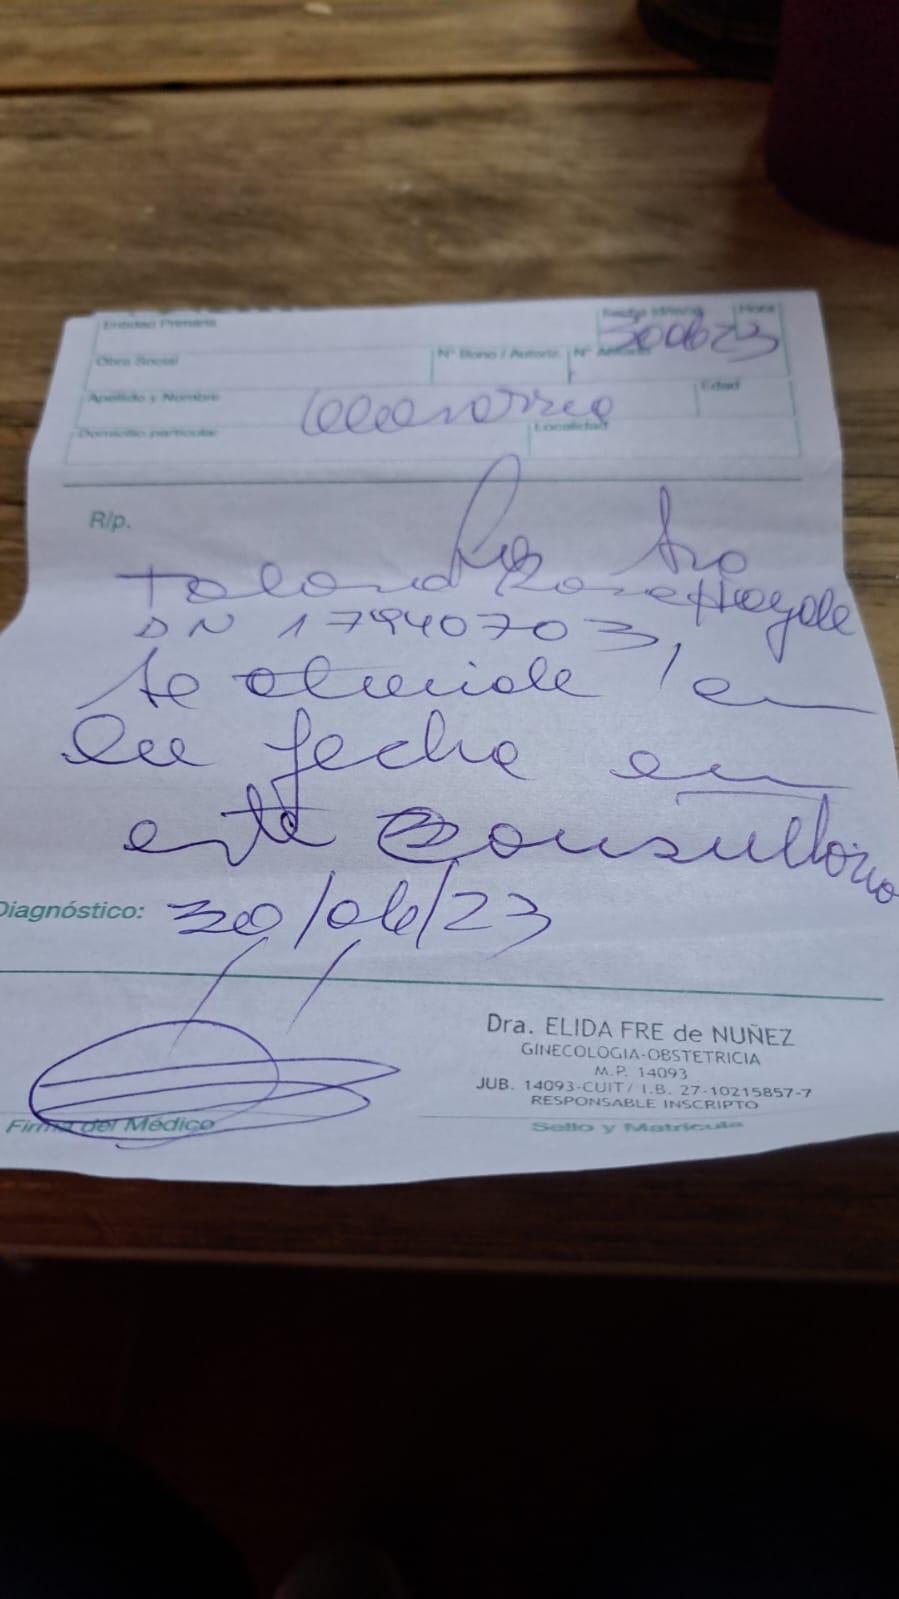 Entidad Primaria
Fecha Hora
300623
Obra Social Nº Bono / Autoriz. Nº
Apellido y Nombre Edad
Domicilio particular Localidad
R/p.
La Sra
DN 17940703
se atiende en
la fecha en
este consultorio
Diagnóstico: 30/06/23
Dra. ELIDA FRE de NUÑEZ
GINECOLOGIA-OBSTETRICIA
M.P. 14093
JUB. 14093-CUIT/ I.B. 27-10215857-7
RESPONSABLE INSCRIPTO
Firma del Médico Sello y Matrícula